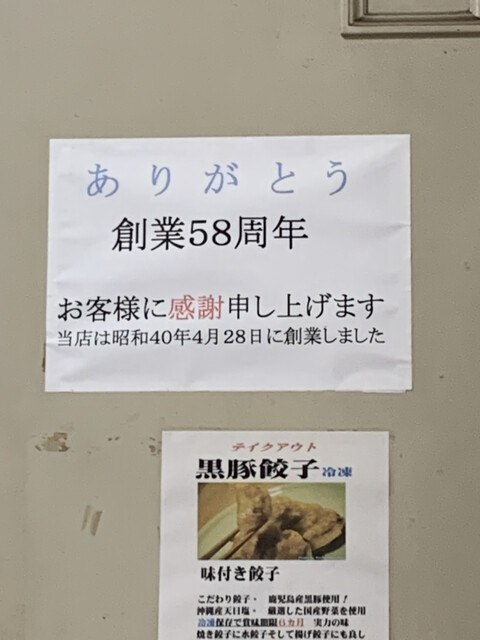 ありがとう
創業58周年
お客様に感謝申し上げます
当店は昭和40年4月28日に創業しました
テイクアウト
黒豚餃子 冷凍
味付き餃子
こだわり餃子・ 鹿児島産黒豚使用!
沖縄産天日塩・ 厳選した国産野菜を使用
冷凍保存で賞味期限6ヵ月 実力の味
焼き餃子に水餃子そして揚げ餃子にも良し